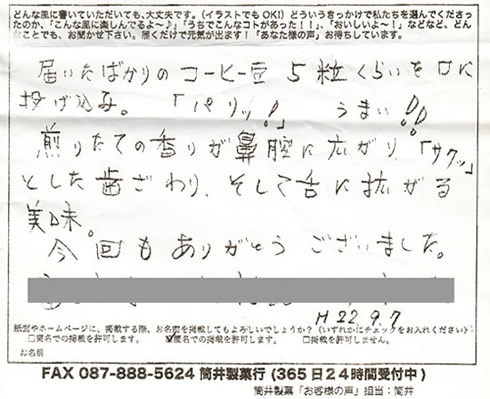 どんな風に書いていただいても、大丈夫です。(イラストでもOK!)どういうきっかけで私たちを選んでくださっ
たのか、「こんな風に楽しんでるよ〜♪」「うちでこんなコトがあった!!」、「おいしいよー!」などなど、どん
なことでも、お聞かせ下さい。届くだけで元気が出ます!「あなた様の声」お待ちしています。
届いたばかりのコーヒー豆 5粒くらいを口に
投げ込み。「パリッ!」 うまい!!
煎りたての香りが鼻腔に広がり「サクッ」
とした歯ざわり、そして舌に拡がる
美味。
今回もありがとうございました。
H22.9.7
紙面やホームページに、掲載する際、お名前を掲載してもよろしいでしょうか?(いずれかにチェックをお入れください)
□実名での掲載を許可します。 ☑匿名での掲載を許可します。 □掲載を許可しません。
お名前
FAX 087-888-5624 筒井製菓行(365日24時間受付中)
筒井製菓「お客様の声」担当:筒井